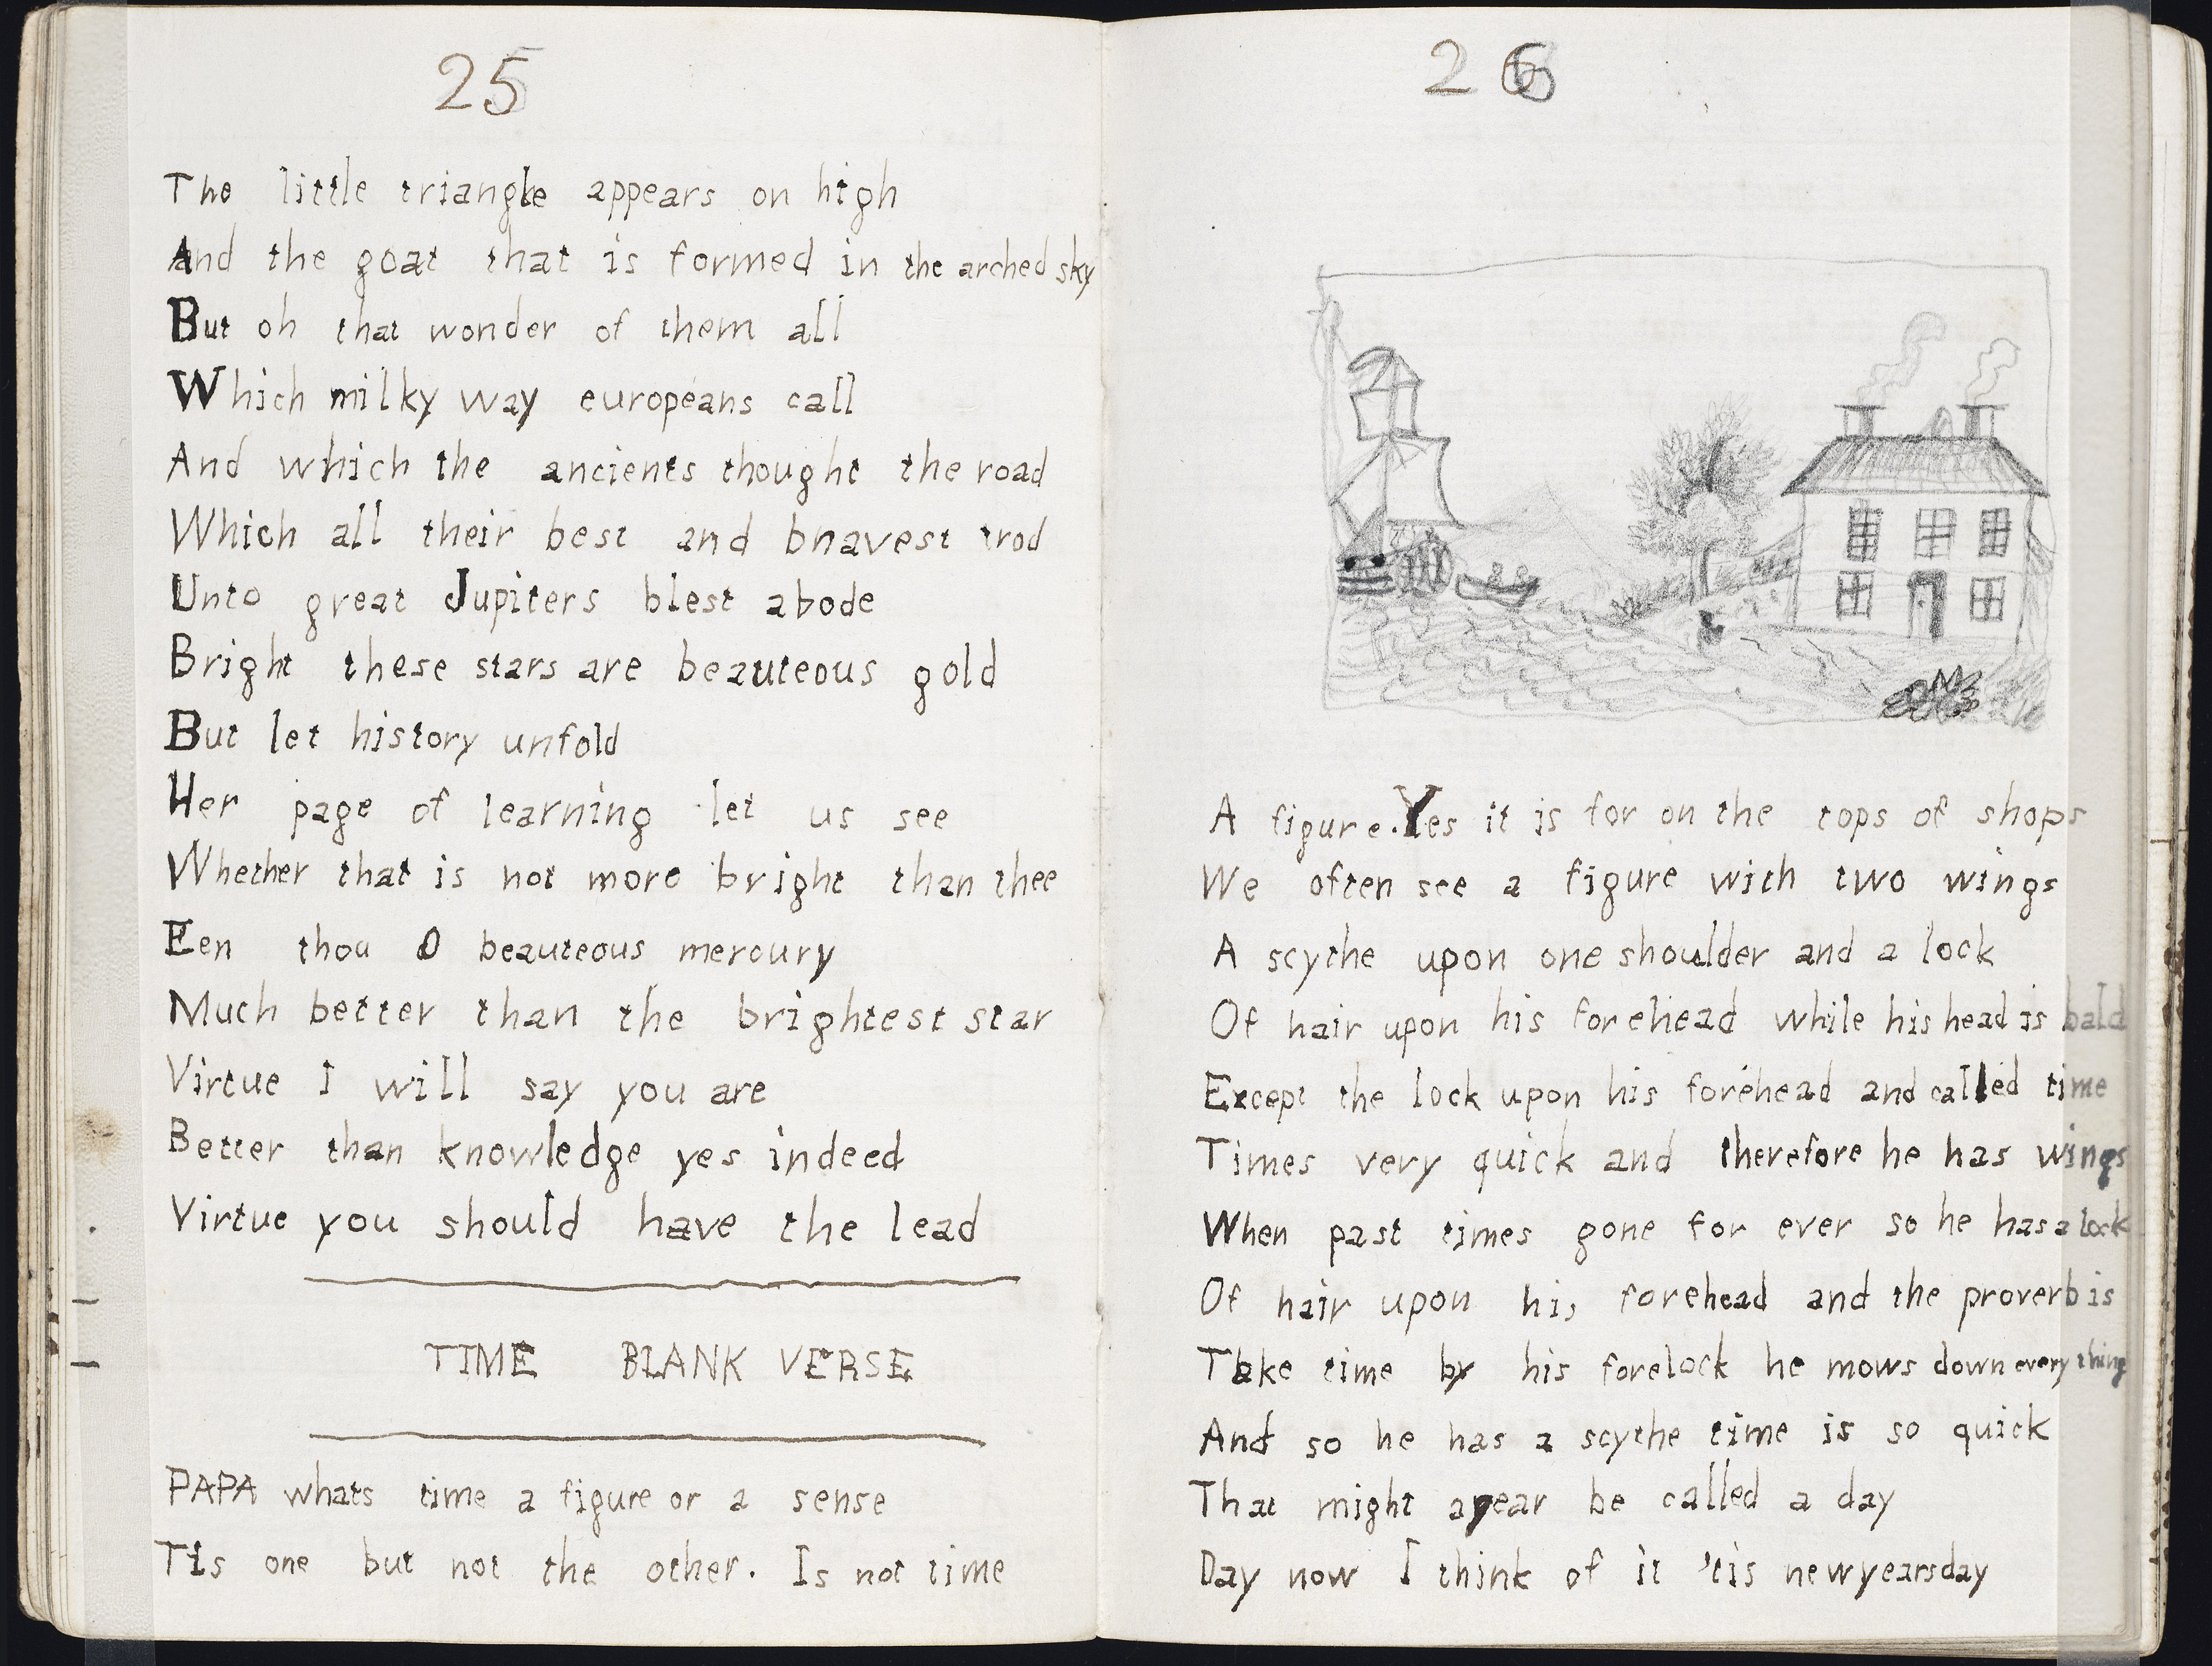 25
The little triangle appears on high
And the goat that is formed in the arched sky
But oh that wonder of them all
Which milky way européans call
And which the ancients thought the road
Which all their best and bravest trod
Unto great Jupiters blest abode
Bright these stars are beauteous gold
But let history unfold
Her page of learning let us see
Whether that is not more bright than thee
Een thou O beauteous mercury
Much better than the brightest star
Virtue I will say you are
Better than knowledge yes indeed
Virtue you should have the lead
TIME BLANK VERSE
PAPA whats time a figure or a sense
Tis one but not the other. Is not time
26
A figure. Yes it is for on the tops of shops
We often see a figure with two wings
A scythe upon one shoulder and a lock
Of hair upon his forehead while his head is bald
Except the lock upon his forehead and called time
Times very quick and therefore he has wings
When past times gone for ever so he has a lock
Of hair upon his forehead and the proverb is
Take time by his forelock he mows down every thing
And so he has a scythe time is so quick
That might a year be called a day
Day now I think of it 'tis newyearsday